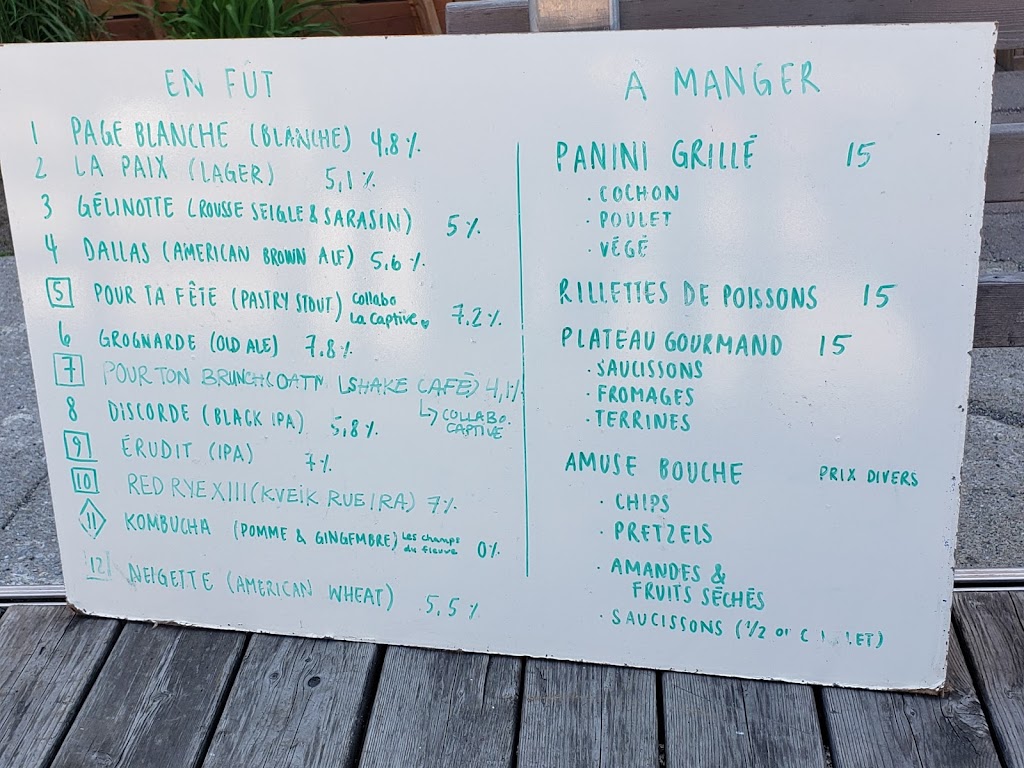 EN FÛT
1 PAGE BLANCHE (BLANCHE) 4,8%
2 LA PAIX (LAGER) 5,1%
3 GÉLINOTTE (ROUSSE SEIGLE & SARASIN) 5%
4 DALLAS (AMERICAN BROWN ALE) 5,6%
5 POUR TA FÊTE (PASTRY STOUT) Collabo La Captive 7.2%
6 GROGNARDE (OLD ALE) 7.8%
7 POUR TON BRUNCH (OATM (SHAKE CAFÉ) 4,1%
↳ COLLABO.
CAPTIVE
8 DISCORDE (BLACK IPA) 5,8%
9 ÉRUDIT (IPA) 7%
10 RED RYE XIII (KVEIK RYE IRA) 7%
11 KOMBUCHA (POMME & GINGEMBRE) Les champs du fleuve 0%
12 NEIGETTE (AMERICAN WHEAT) 5,5%
A MANGER
PANINI GRILLÉ 15
· COCHON
· POULET
· VÉGÉ
RILLETTES DE POISSONS 15
PLATEAU GOURMAND 15
· SAUCISSONS
· FROMAGES
· TERRINES
AMUSE BOUCHE PRIX DIVERS
· CHIPS
· PRETZELS
· AMANDES &
FRUITS SÉCHÉS
· SAUCISSONS (1/2